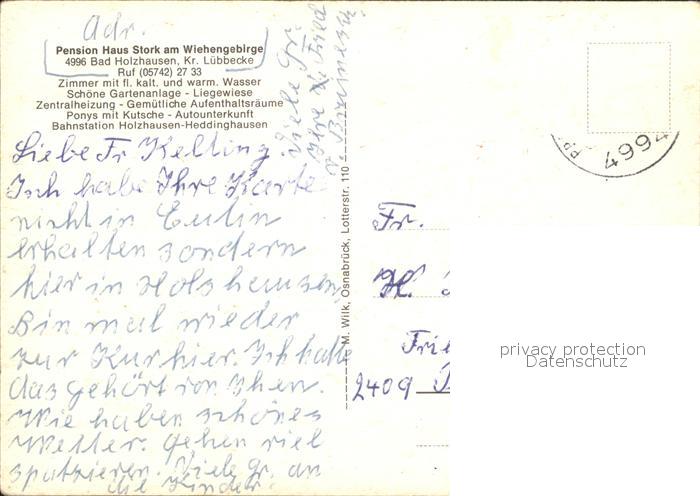 Adr.
Pension Haus Stork am Wiehengebirge
4996 Bad Holzhausen, Kr. Lübbecke
Ruf (05742) 27 33
Zimmer mit fl. kalt. und warm. Wasser
Schöne Gartenanlage - Liegewiese
Zentralheizung - Gemütliche Aufenthaltsräume
Ponys mit Kutsche - Autounterkunft
Bahnstation Holzhausen-Heddinghausen
Liebe Fr Kelling
Ich habe Ihre Karte
nicht in Eutin
erhalten sondern
hier in Holzhausen
Bin mal wieder
zur Kur hier. Ich hatte
das gehört von Ihnen.
Wie haben schönes
Wetter. Gehen viel
spatzieren. Viele Gr. an
die Kinder.
Viele Gr.
Ihre
M. Wilk, Osnabrück, Lotterstr. 110
4994
Fr.
H.
Frie
2409
privacy protection
Datenschutz